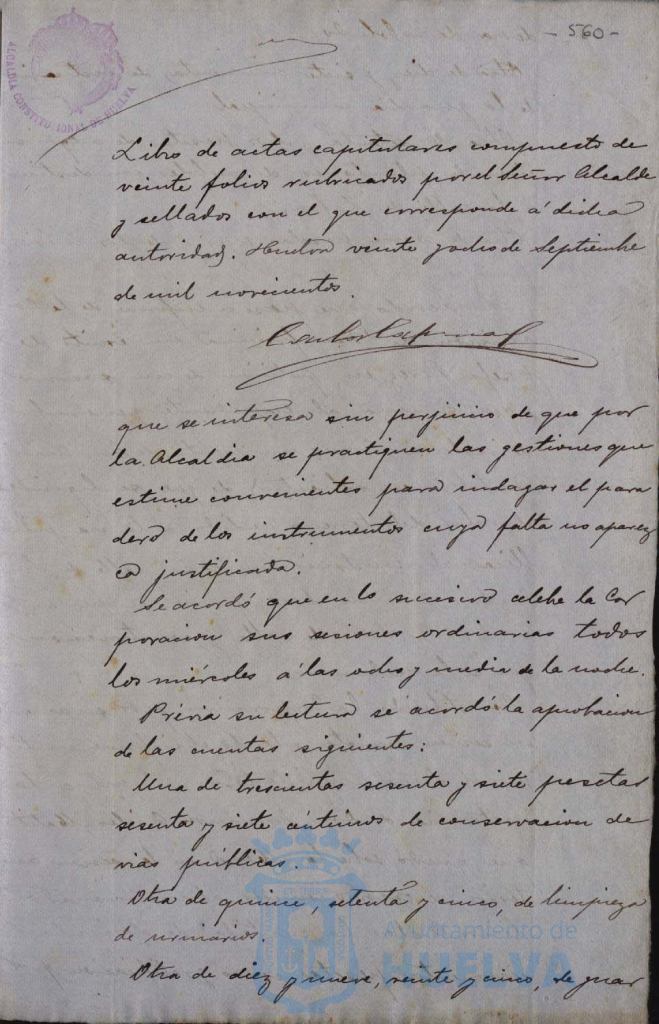 - 560 -
ALCALDIA CONSTITUCIONAL DE HUELVA
Libro de actas capitulares compuesto de
veinte folios rubricados por el Señor Alcalde
y sellados con el que corresponde á dicha
autoridad. Huelva veinte y ocho de Septiembre
de mil novecientos.
que se interesa sin perjuicio de que por
la Alcaldia se practiquen las gestiones que
estime convenientes para indagar el para
dero de los instrumentos cuya falta no aparez
ca justificada.
Se acordó que en lo sucesivo celebre la Cor
poracion sus sesiones ordinarias todos
los miércoles á las ocho y media de la noche.
Prévia su lectura se acordó la aprobacion
de las cuentas siguientes:
Una de trescientas sesenta y siete pesetas
sesenta y siete céntimos de conservacion de
vias públicas.
Otra de quince, setenta y cinco, de limpieza
de urinarios.
Otra de diez y nueve, veinte y cinco, de guar
Ayuntamiento de
HUELVA